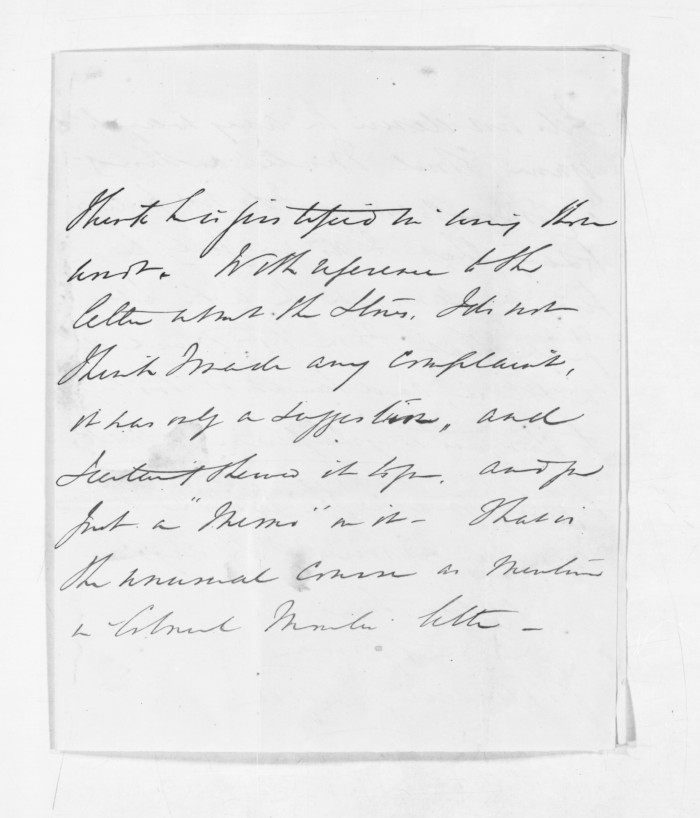 think he is justified in using those
words. With reference to the
letter about the Stores, I do not
think I made any complaint,
it was only a suggestion, and
I showed it to you. and you
put a "Memo" on it - That is
the unusual course as mention
in Colonel letter -